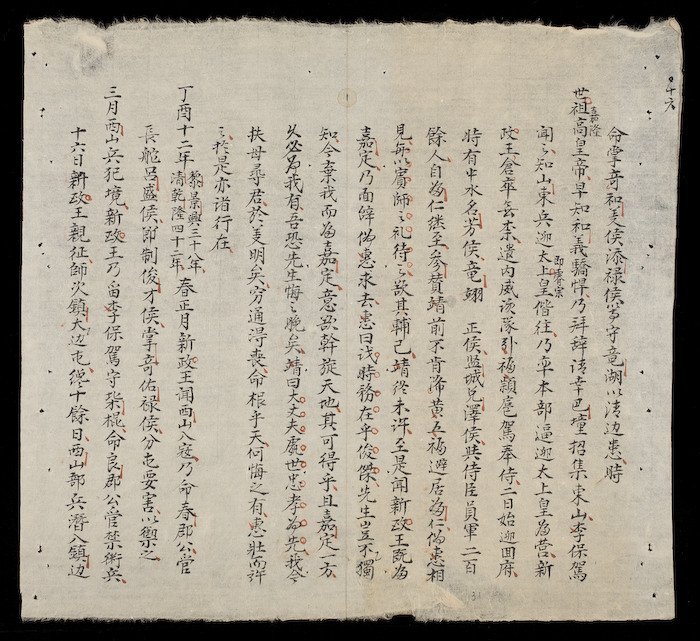 命掌奇和美侯添禄侯等守竜湖以清边患時
世祖嘉隆高皇帝早知和義驕悍乃拜辞往幸巴墥招集東山李保駕
聞之知山東兵迎太上皇即睿宗偕往乃率本部逼迎太上皇為营新
政王倉卒無李遣内威该隊引福颖扈駕奉侍二日始迎回府
時有中水名芳侯竜翊 正侯监城兑澤侯共侍臣員軍二百
餘人自為仁継至参賛靖前不肯滞黄五福避居為仁偽惠相
見每以賓師之礼待之欲其輔已靖終未许至是闻新政王既為
嘉定乃面辞偽惠求去惠曰识時務在乎俊傑先生豈不獨
知今棄我而為嘉定意欲幹旋天地其可得乎且嘉定一方
久必為我有吾恐先生悔之晚矣靖曰大丈夫處世忠孝為先我今
扶母尋君於美明矣穷通得喪命根乎天何悔之有惠壮而许
之於是亦道行在
丁酉十二年黎景興三十八年清乾隆四十二年春正月新政王闻西山入寇乃命春郡公营
長舵吕盛侯即制俊才侯掌奇佑禄侯分屯要害以禦之
三月西山兵犯境新政王乃留李保駕守柴棍命良郡公管禁衛兵
十六日新政王親征師次鎮大边屯 十餘日西山部兵潛入鎮边